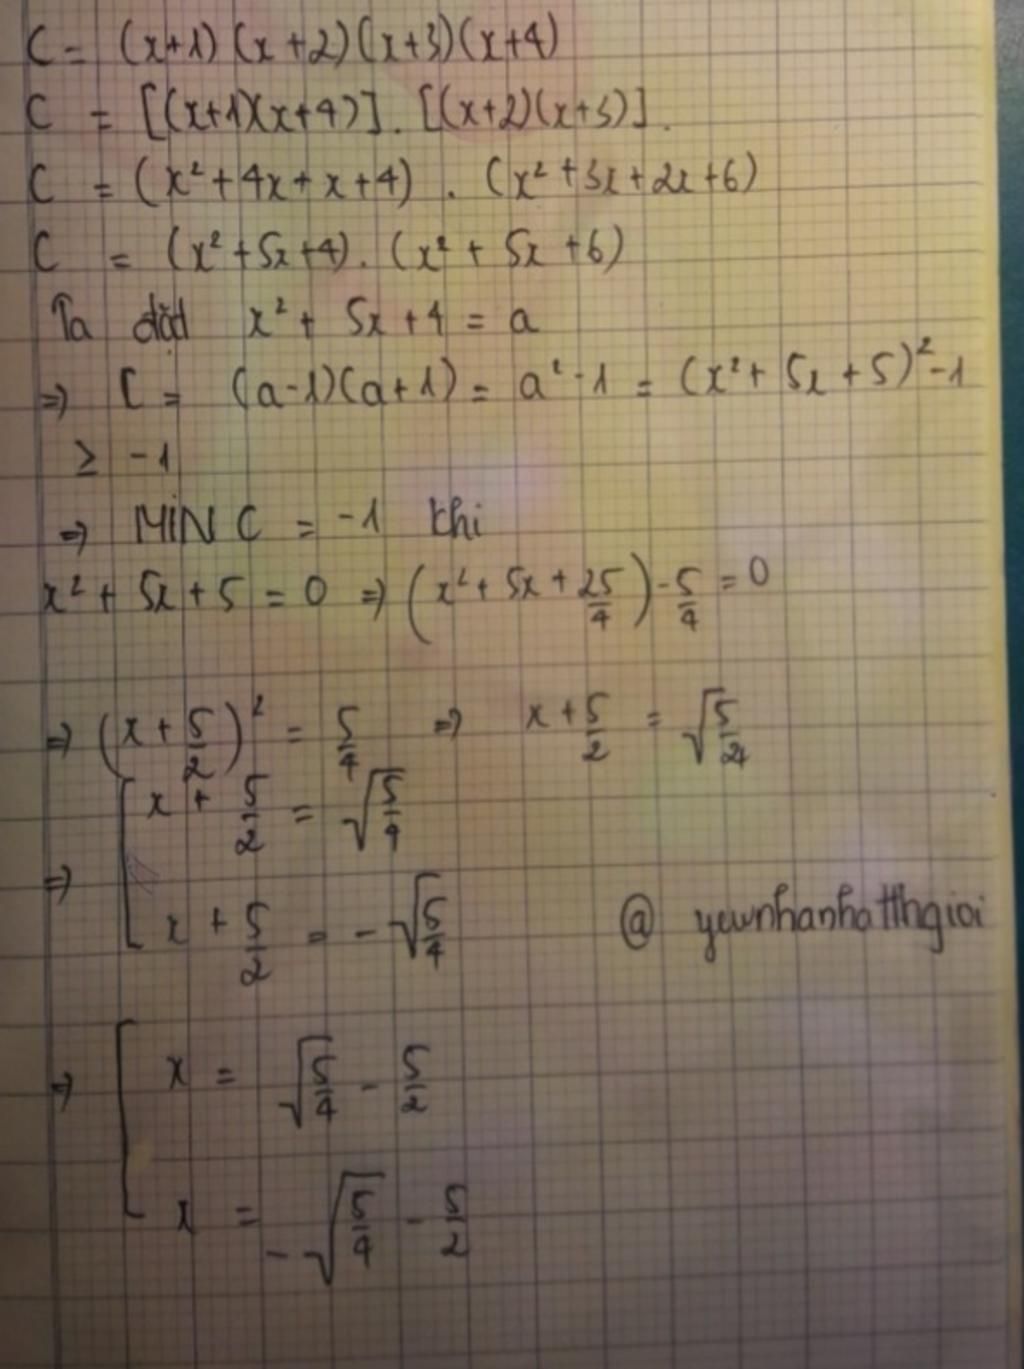 C = (x+1)(x+2)(x+3)(x+4)
C = [(x+1)(x+4)].[(x+2)(x+3)].
C = (x²+4x+x+4).(x²+3x+2x+6)
C = (x²+5x+4).(x²+5x+6)
Ta đặt x²+5x+4 = a
⇒ C = (a-1)(a+1) = a²-1 = (x²+5x+5)²-1
≥ -1
⇒ MIN C = -1 khi
x²+5x+5 = 0 ⇒ (x²+5x+25/4)-5/4 = 0
⇒ (x+5/2)² = 5/4 ⇒ x+5/2 = √5/4
⇒ [ x+5/2 = √5/4
x+5/2 = -√5/4
@ yeunhanhatthgioi
⇒ [ x = √5/4 - 5/2
x = -√5/4 - 5/2